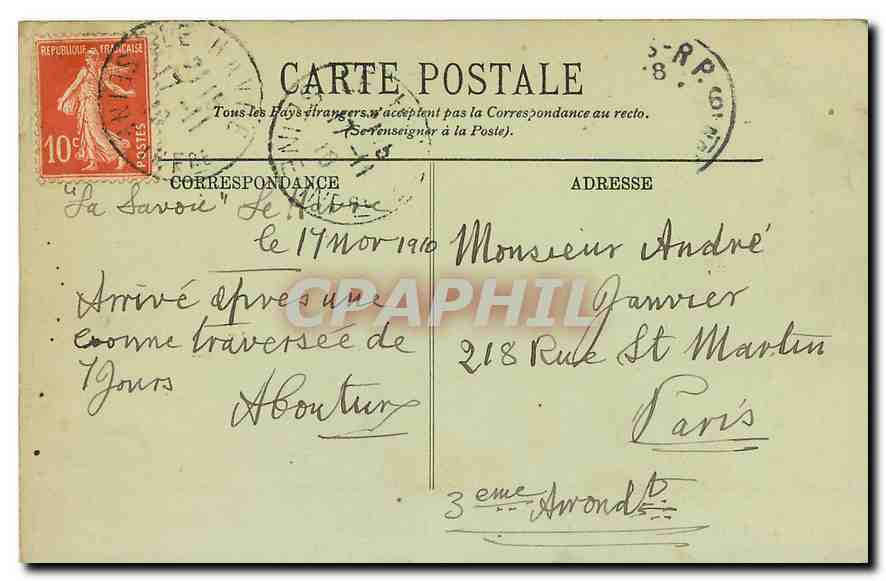 REPUBLIQUE FRANÇAISE
10c POSTES
LE HAVRE
CARTE POSTALE
Tous les Pays étrangers n'acceptent pas la Correspondance au recto.
(Se renseigner à la Poste).
CORRESPONDANCE
"La Savoie" Le Havre
le 17 Nov 1910
Arrivé après une
bonne traversée de
7 Jours
ADRESSE
Monsieur André
Janvier
218 Rue St Martin
Paris
3eme Arrondt
CPAPHIL